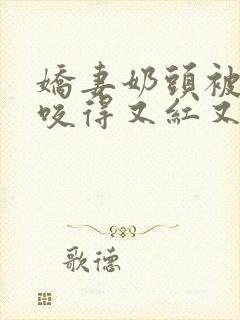 嬌妻奶頭被
咬得又紅又
歌德